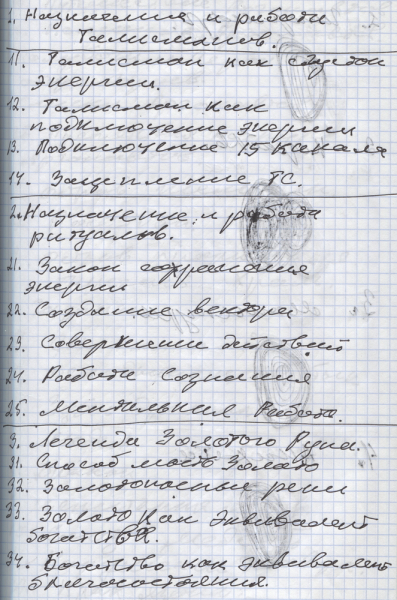 1. Назначение и работа
Талисманов.
11. Талисман как сгусток
энергии.
12. Талисман как
подключение энергии
13. Подключение 15 канала
14. Зацепление ТС.
2. Назначение и работа
ритуалов.
21. Закон сохранения
энергии
22. Создание вектора
23. Совершение действий
24. Работа Сознания
25. Ментальная Работа.
3. Легенда Золотого Руна.
31. Способ мыть Золото
32. Золотоносные реки
33. Золото как эквивалент
богатства.
34. Богатство как эквивалент
благосостояния.